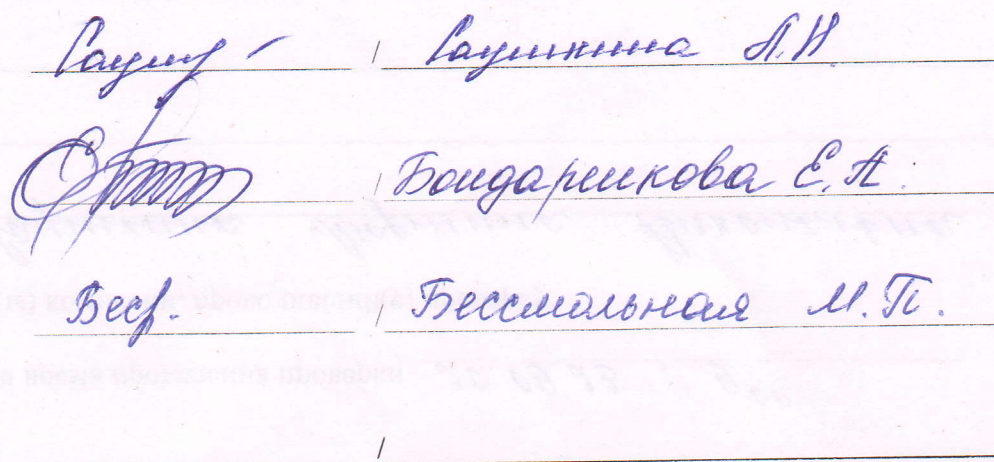 / Саушкина А.Н.
/ Бондаренкова Е.А.
Бесс. / Бессмольная М.П.
/